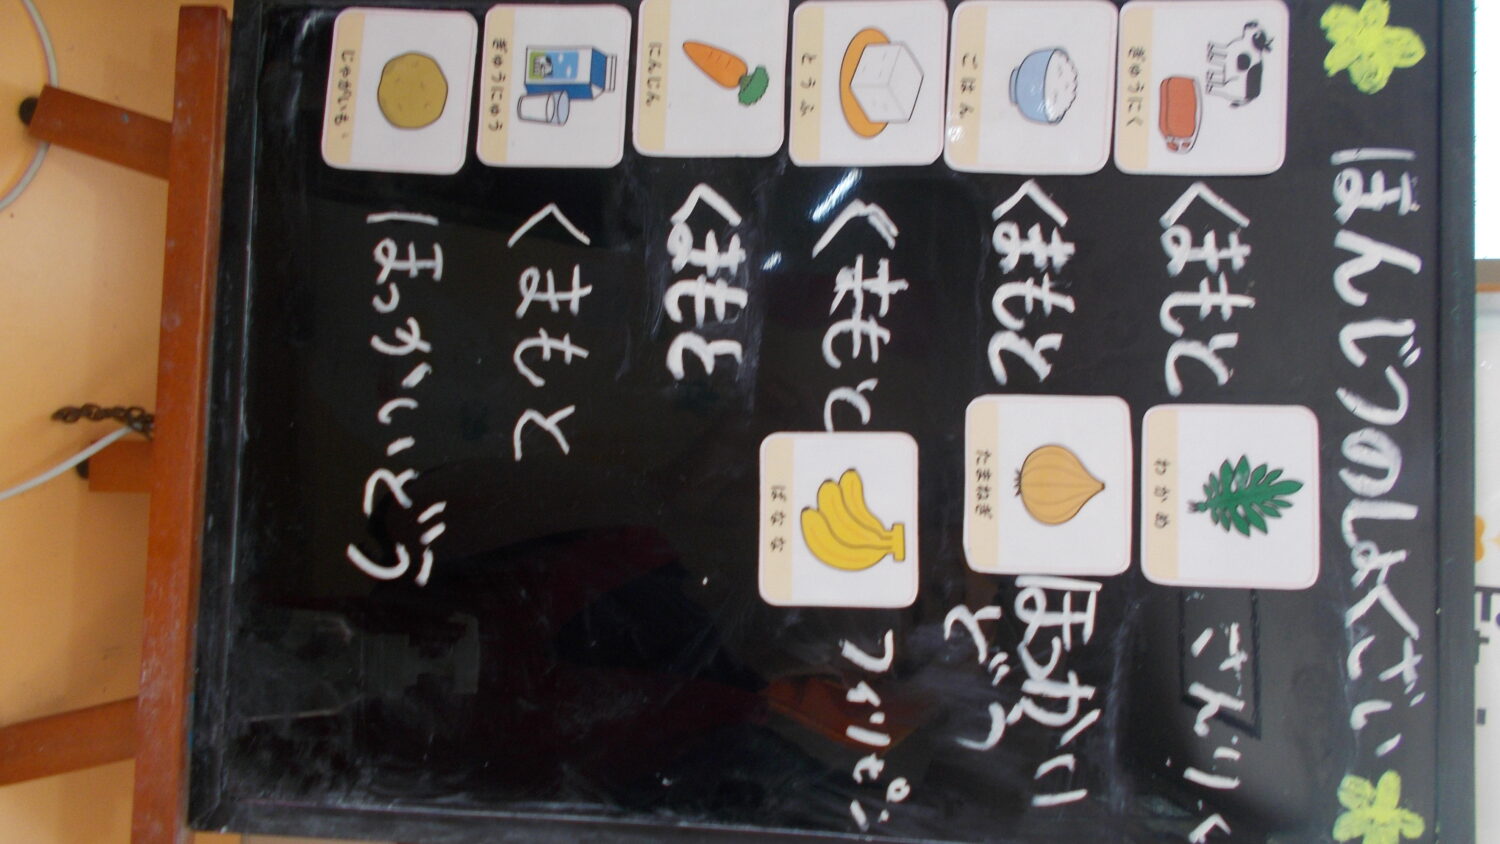 ほんじつのしょくざい
ぎゅうにく くまもと わかめ さんりく
ごはん くまもと たまねぎ ほっかい
どう
とうふ くまもと ばなな フィリピン
にんじん くまもと
ぎゅうにゅう くまもと
じゃがいも ほっかいどう